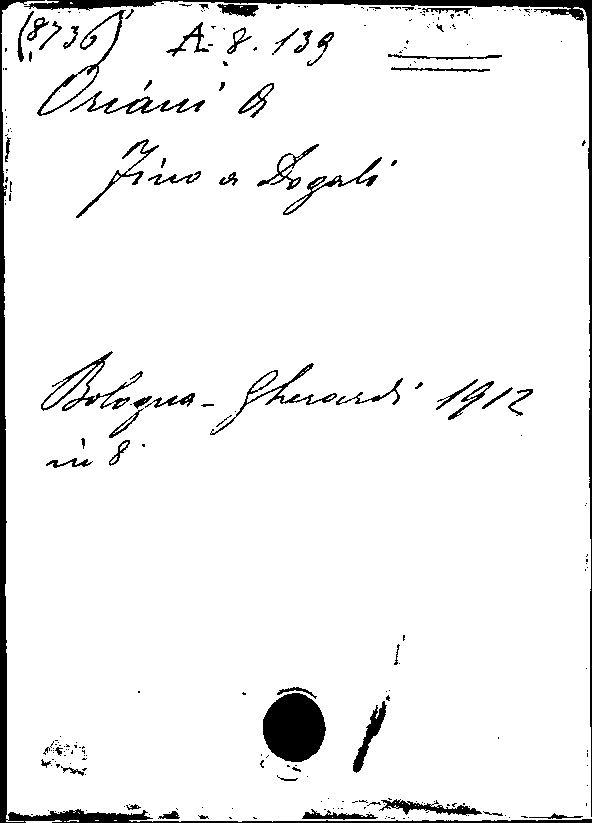 (8736) A. 8. 139
Oriani A
Fino a Dogali
Bologna - Gherardi 1912
in 8°